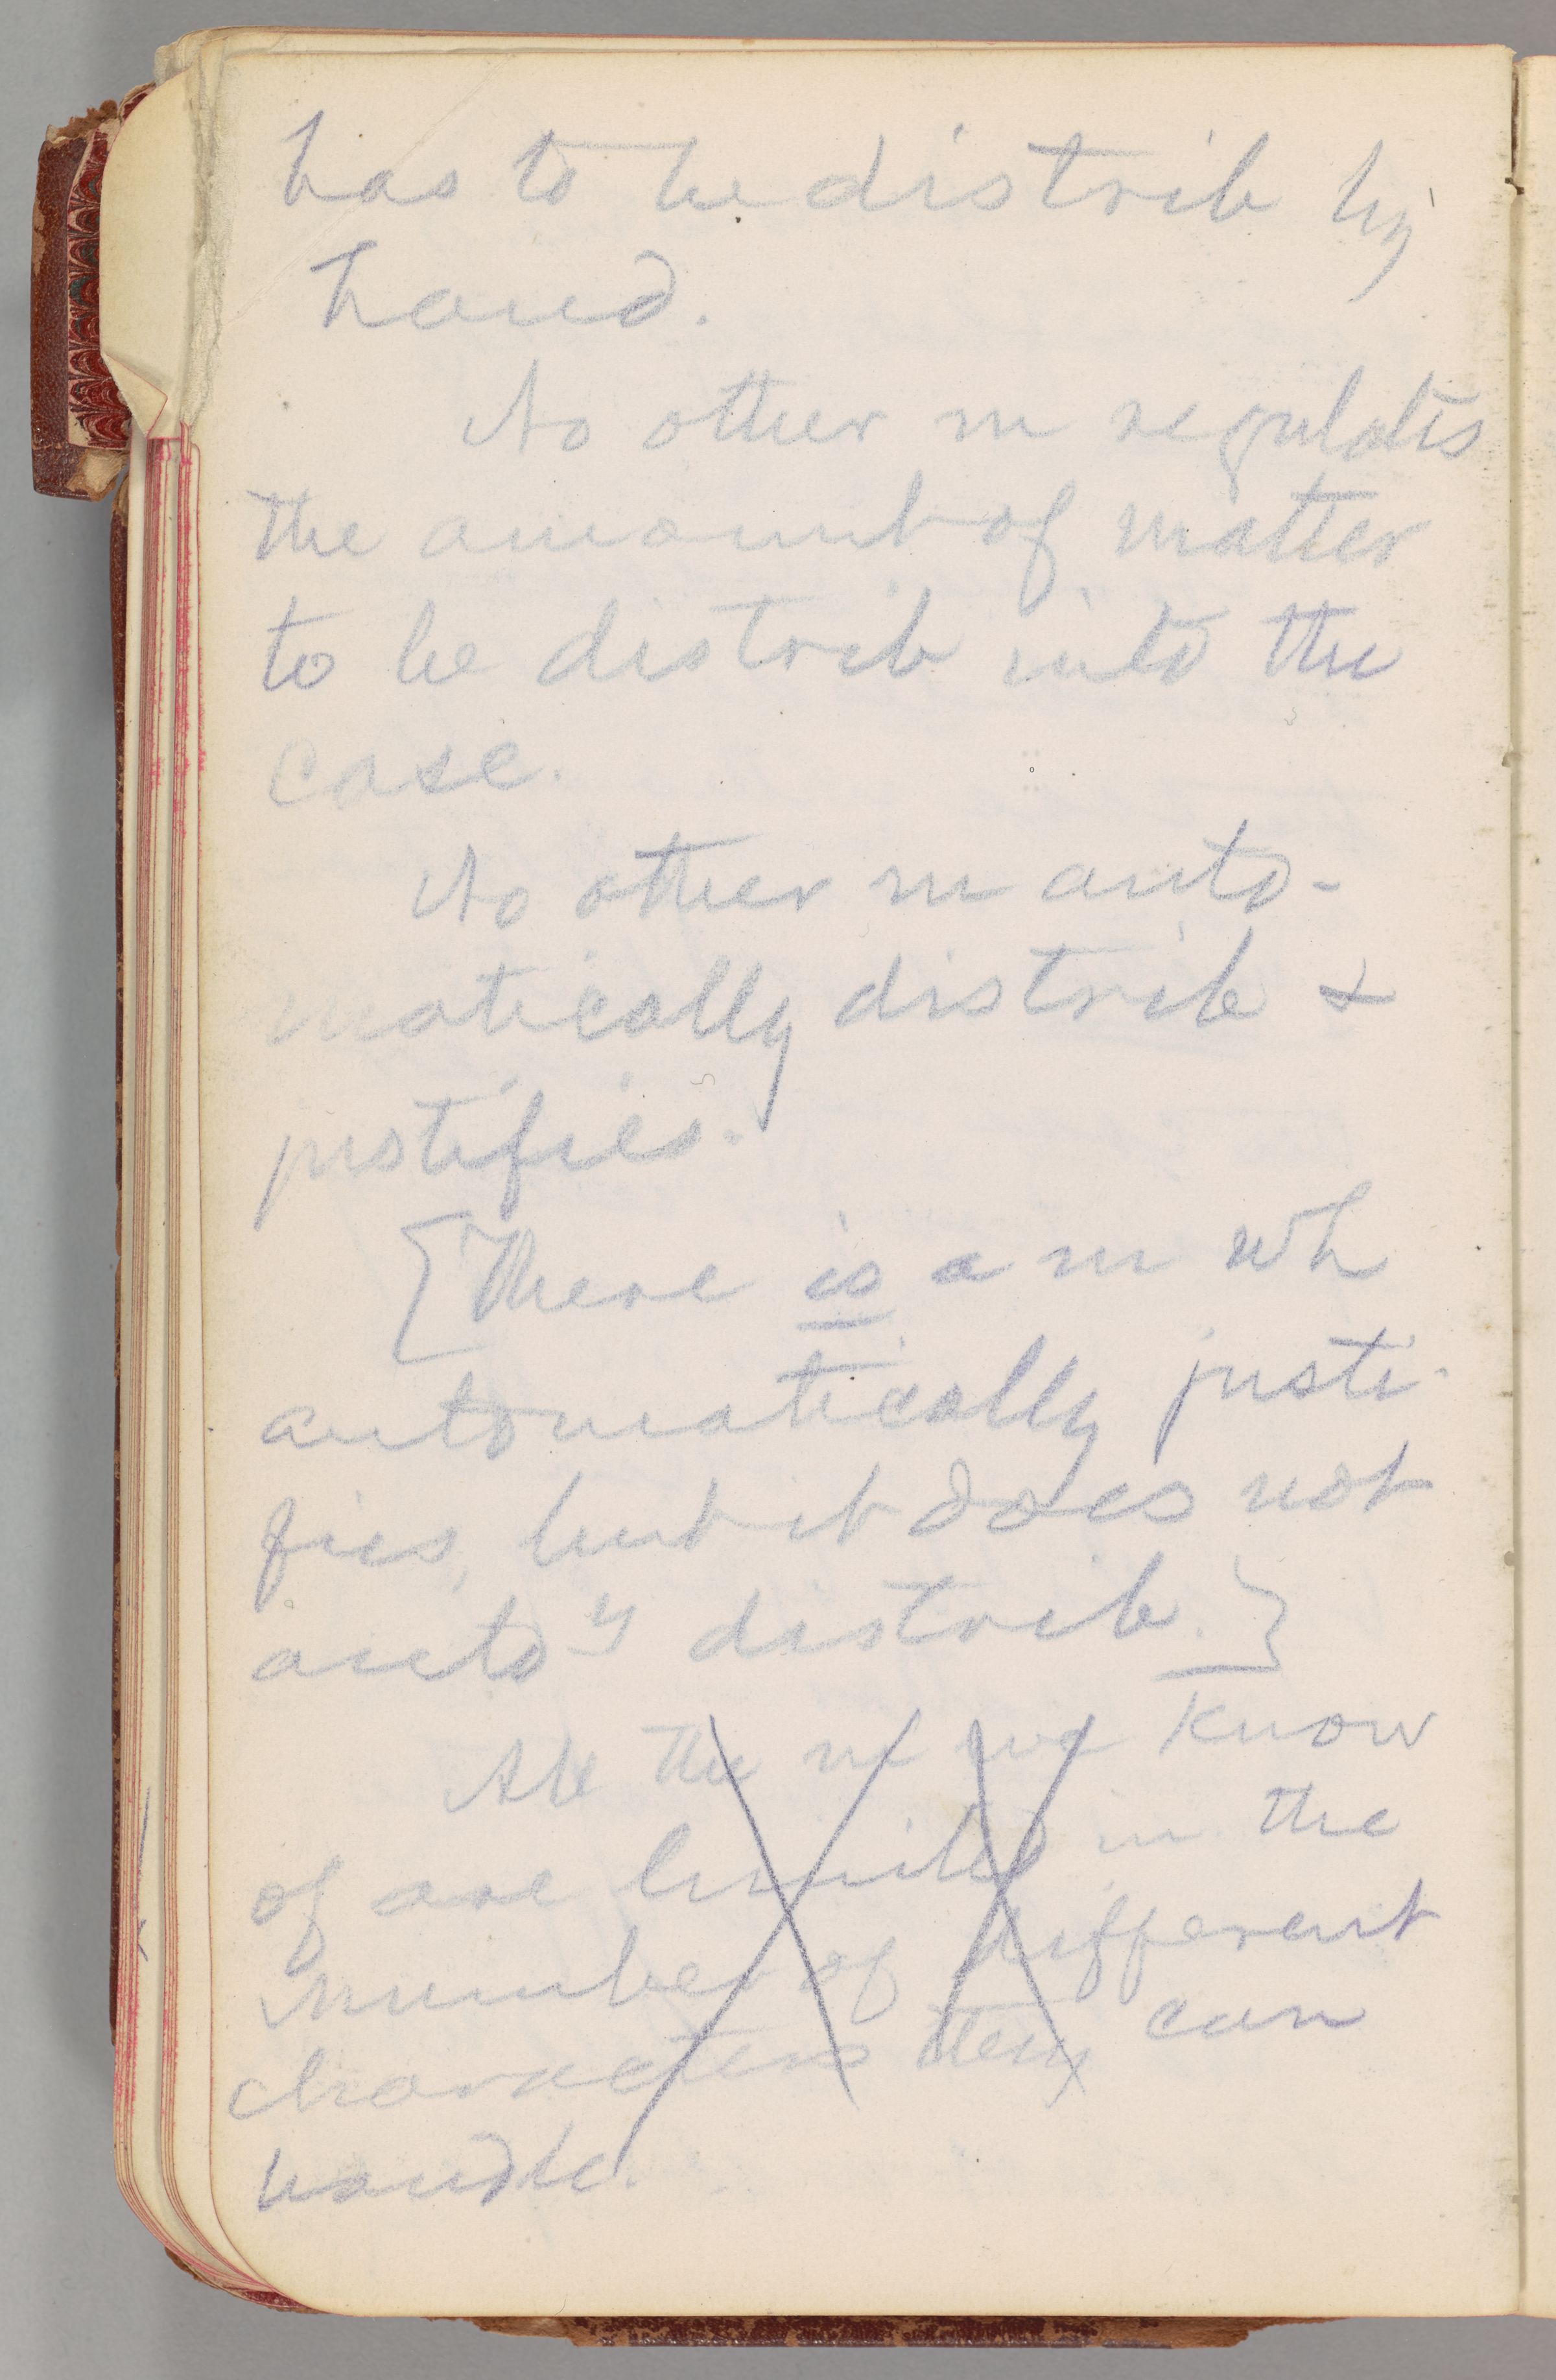 has to be distrib by
hand.
No other m regulates
the amount of matter
to be distrib into the
case.
No other m auto-
matically distrib &
justifies.
[There is a m wh
automatically justi-
fies, but it does not
autoy distrib.]
All the m we know
of are limited in the
number of different
characters they can
handle.